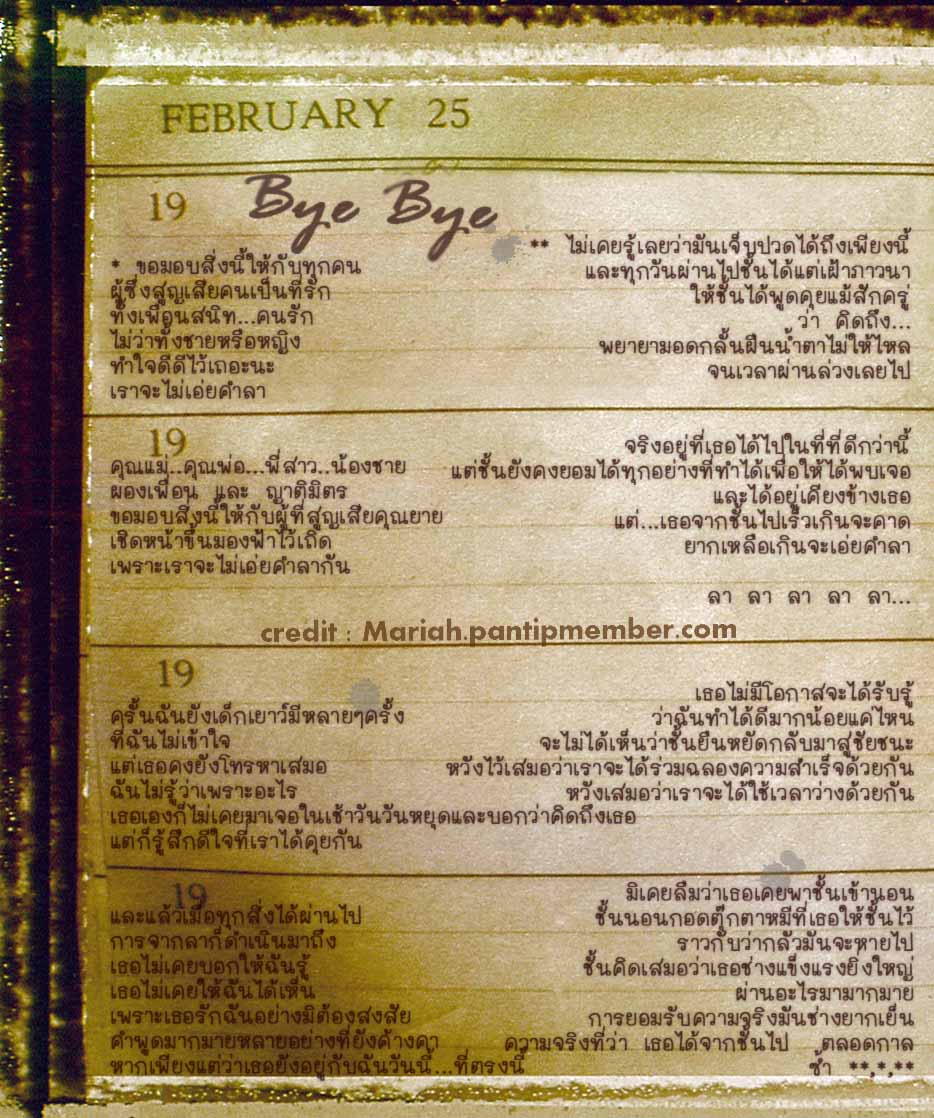 FEBRUARY 25
19
Bye Bye
* ขอมอบสิ่งนี้ให้กับทุกคน
ผู้ซึ่งสูญเสียคนเป็นที่รัก
ทั้งเพื่อนสนิท...คนรัก
ไม่ว่าทั้งชายหรือหญิง
ทำใจดีดีไว้เถอะนะ
เราจะไม่เอ่ยคำลา
** ไม่เคยรู้เลยว่ามันเจ็บปวดได้ถึงเพียงนี้
และทุกวันผ่านไปชั้นได้แต่เฝ้าภาวนา
ให้ชั้นได้พูดคุยแม้สักครู่
ว่า คิดถึง...
พยายามอดกลั้นฝืนน้ำตาไม่ให้ไหล
จนเวลาผ่านล่วงเลยไป
19
คุณแม่..คุณพ่อ...พี่สาว..น้องชาย
ผองเพื่อน และ ญาติมิตร
ขอมอบสิ่งนี้ให้กับผู้ที่สูญเสียคุณยาย
เชิดหน้าขึ้นมองฟ้าไว้เถิด
เพราะเราจะไม่เอ่ยคำลากัน
จริงอยู่ที่เธอได้ไปในที่ที่ดีกว่านี้
แต่ชั้นยังคงยอมได้ทุกอย่างที่ทำได้เพื่อให้ได้พบเจอ
และได้อยู่เคียงข้างเธอ
แต่...เธอจากชั้นไปเร็วเกินจะคาด
ยากเหลือเกินจะเอ่ยคำลา
ลา ลา ลา ลา ลา...
credit : Mariah.pantipmember.com
19
ครั้นฉันยังเด็กเยาว์มีหลายๆครั้ง
ที่ฉันไม่เข้าใจ
แต่เธอคงยังโทรหาเสมอ
ฉันไม่รู้ว่าเพราะอะไร
เธอเองก็ไม่เคยมาเจอในเช้าวันวันหยุดและบอกว่าคิดถึงเธอ
แต่ก็รู้สึกดีใจที่เราได้คุยกัน
เธอไม่มีโอกาสจะได้รับรู้
ว่าฉันทำได้ดีมากน้อยแค่ไหน
จะไม่ได้เห็นว่าชั้นยืนหยัดกลับมาสู่ชัยชนะ
หวังไว้เสมอว่าเราจะได้ร่วมฉลองความสำเร็จด้วยกัน
หวังเสมอว่าเราจะได้ใช้เวลาว่างด้วยกัน
19
และแล้วเมื่อทุกสิ่งได้ผ่านไป
การจากลาก็ดำเนินมาถึง
เธอไม่เคยบอกให้ฉันรู้
เธอไม่เคยให้ฉันได้เห็น
เพราะเธอรักฉันอย่างมิต้องสงสัย
คำพูดมากมายหลายอย่างที่ยังค้างคา
หากเพียงแต่ว่าเธอยังอยู่กับฉันวันนี้...ที่ตรงนี้
มิเคยลืมว่าเธอเคยพาชั้นเข้านอน
ชั้นนอนกอดตุ๊กตาหมีที่เธอให้ชั้นไว้
ราวกับว่ากลัวมันจะหายไป
ชั้นคิดเสมอว่าเธอช่างแข็งแรงยิ่งใหญ่
ผ่านอะไรมามากมาย
การยอมรับความจริงมันช่างยากเย็น
ความจริงที่ว่า เธอได้จากชั้นไป ตลอดกาล
ซ้ำ **,*,**